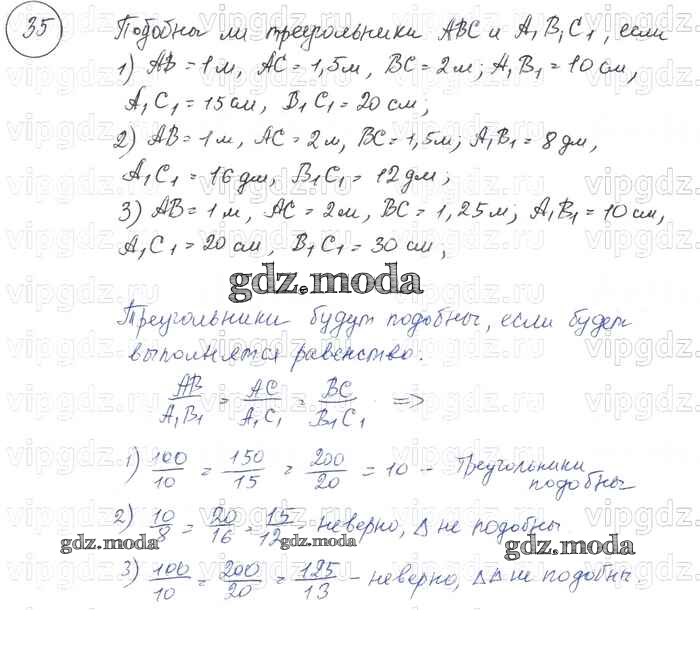 35 Подобны ли треугольники ABC и A₁B₁C₁, если
1) AB = 1 м, AC = 1,5 м, BC = 2 м; A₁B₁ = 10 см,
A₁C₁ = 15 см, B₁C₁ = 20 см;
2) AB = 1 м, AC = 2 м, BC = 1,5 м; A₁B₁ = 8 дм,
A₁C₁ = 16 дм, B₁C₁ = 12 дм;
3) AB = 1 м, AC = 2 м, BC = 1,25 м; A₁B₁ = 10 см,
A₁C₁ = 20 см, B₁C₁ = 30 см;
gdz.moda
Треугольники будут подобны, если будет
выполнятся равенство.
AB/A₁B₁ = AC/A₁C₁ = BC/B₁C₁ ⇒
1) 100/10 = 150/15 = 200/20 = 10 - Треугольники
подобны
2) 10/8 = 20/16 = 15/12 - неверно, Δ не подобны
gdz.moda gdz.moda gdz.moda
3) 100/10 = 200/20 = 125/13 - неверно, ΔΔ не подобны.